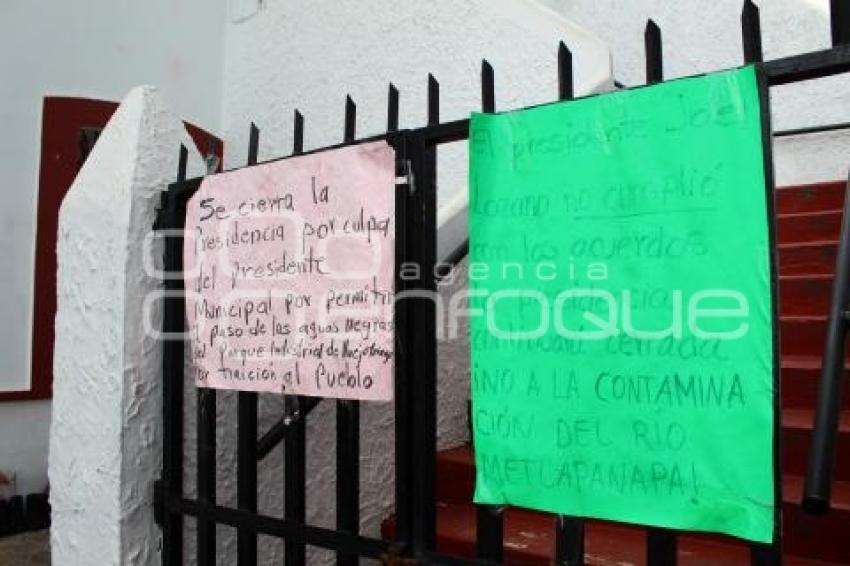 Se cierra la
Presidencia por culpa
del presidente
Municipal por permitir
el paso de las aguas Negras
del Parque Industrial de Huejotzingo
por traición al Pueblo
El presidente Joel
Lozano no cumplió
con los acuerdos
la presidencia
continuará cerrada
¡NO A LA CONTAMINA
CIÓN DEL RÍO
METLAPANAPA!
agencia
enfoque